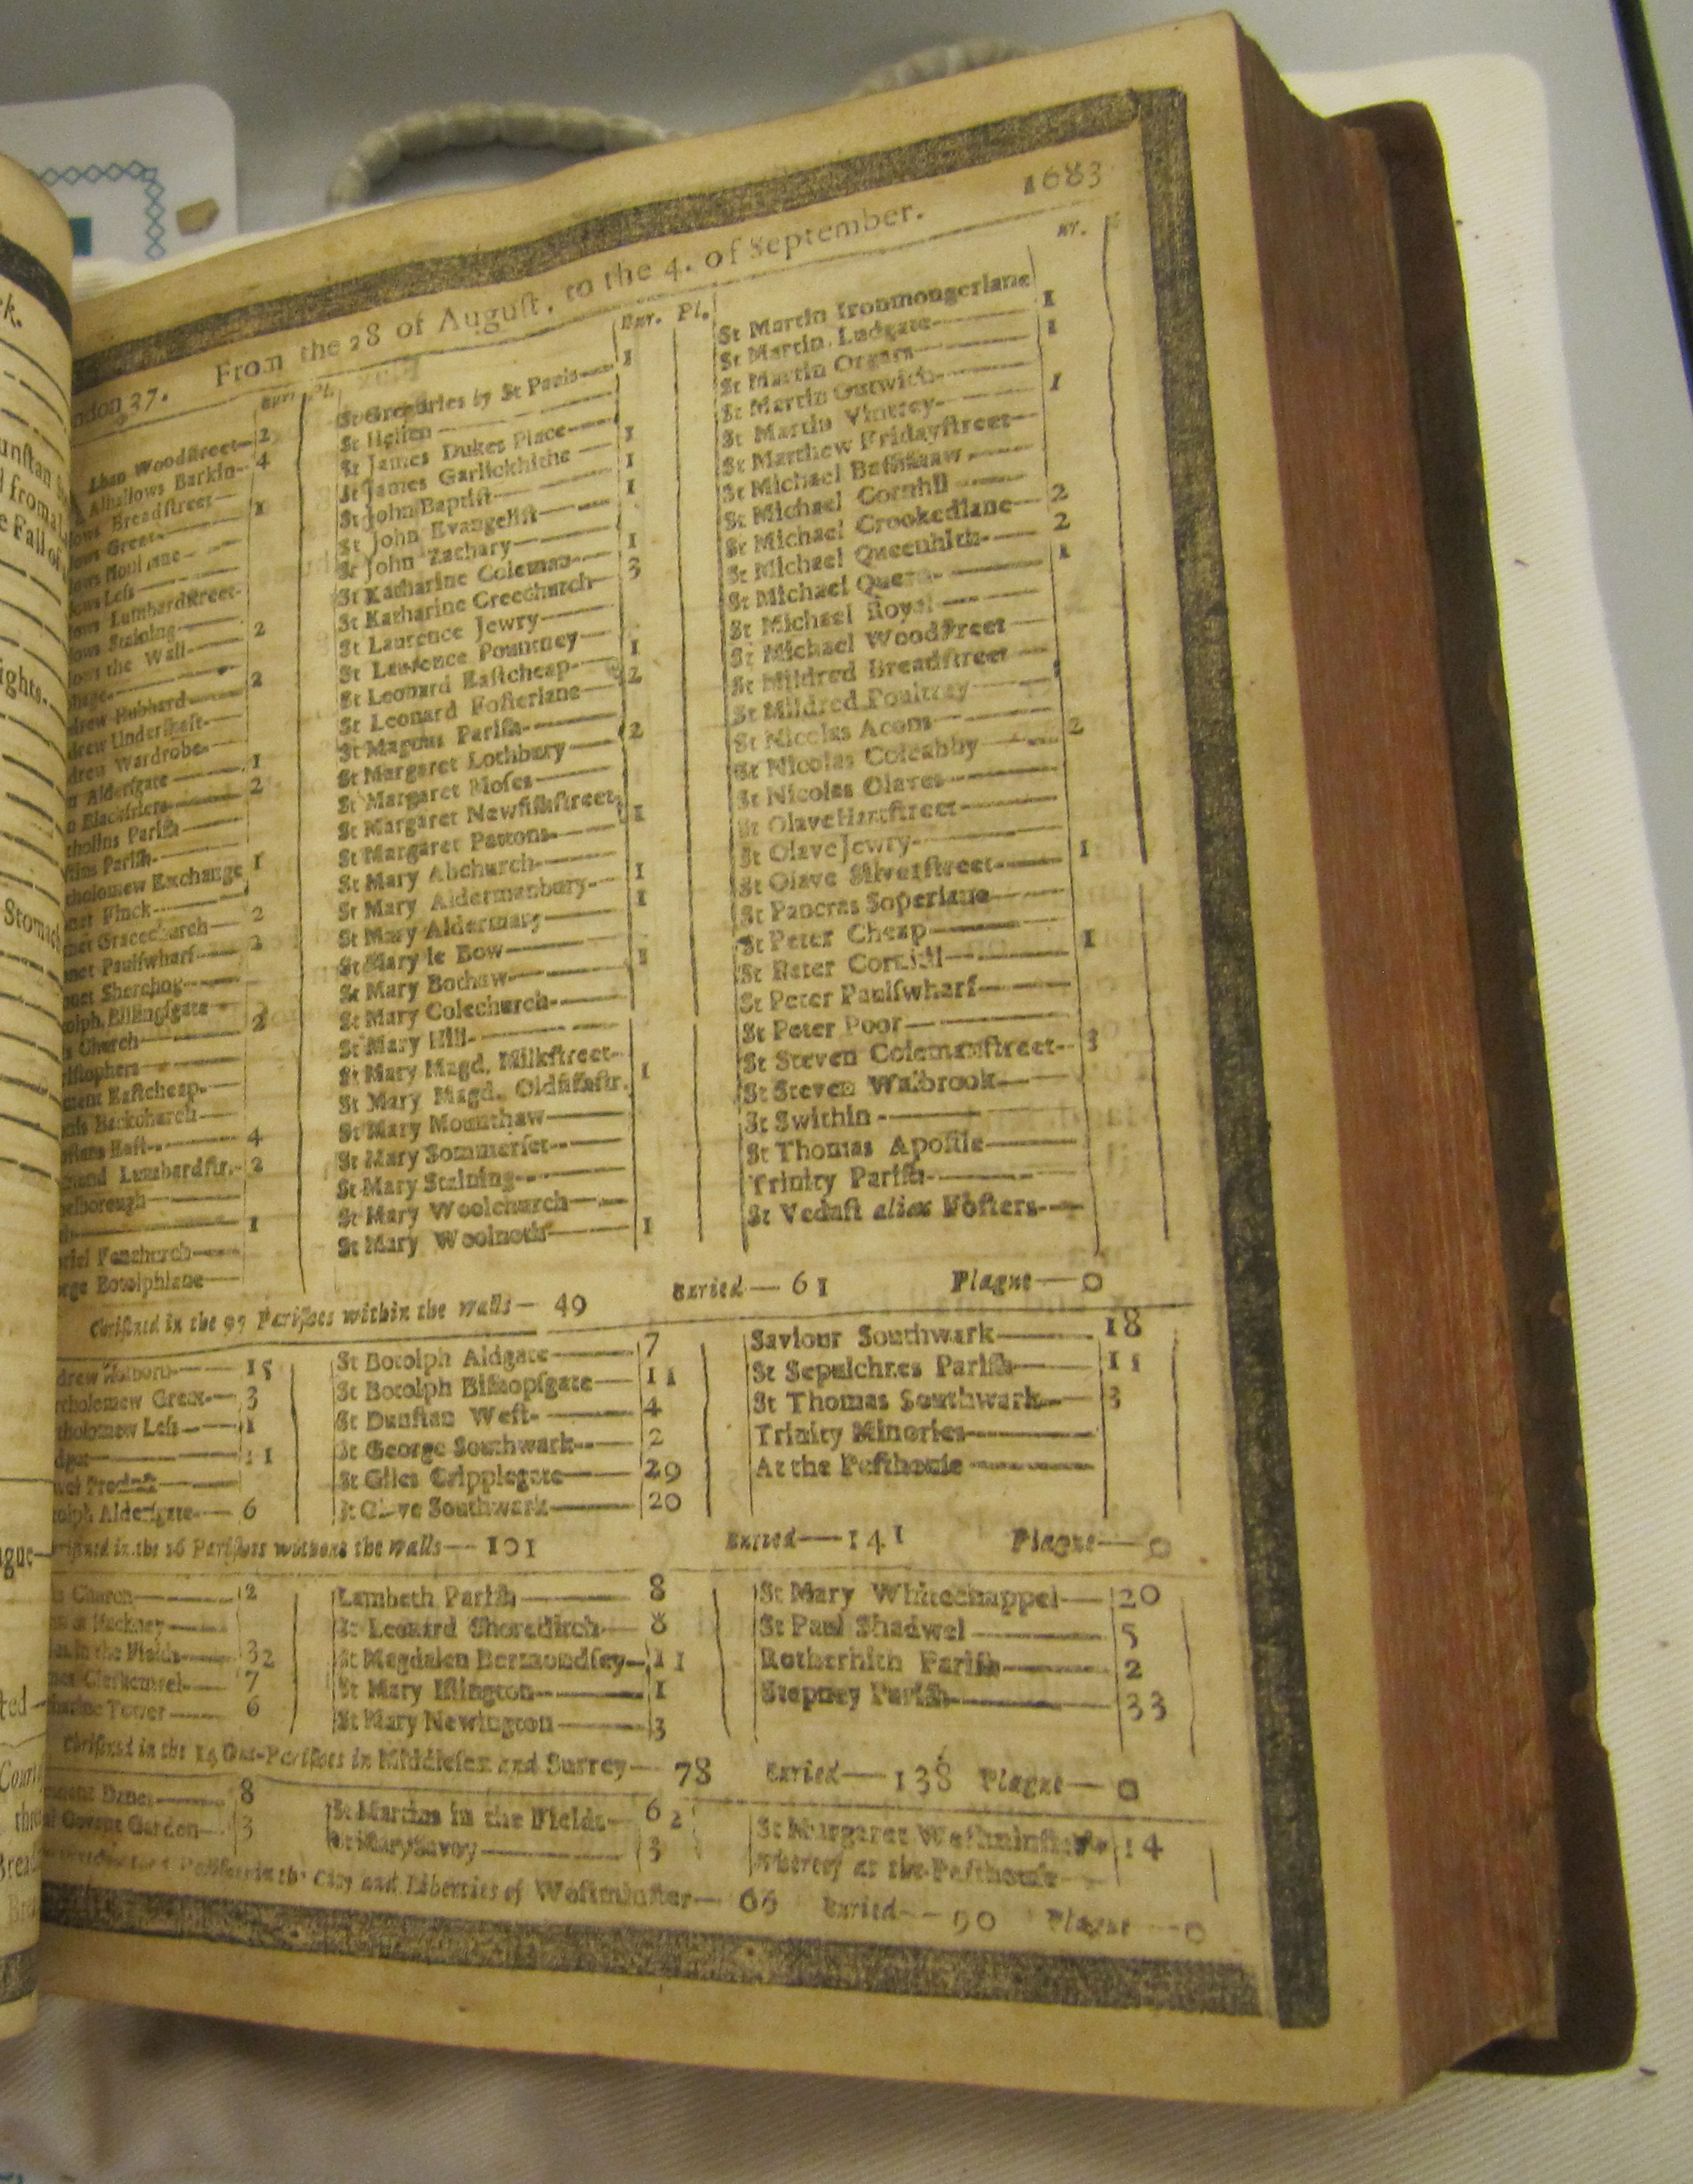 1683
ndon 37. From the 28 of Auguſt, to the 4. of September.
Bur. Pl.
lban Woodſtreet— 2
Alhallows Barkin— 4
lows Breadſtreet—
lows Great— 1
lows
lows Leſs—
lows Lumbardſtreet-
lows Staining—
lows the Wall— 2
phage—
drew Hubbard— 2
drew Underſhaft—
drew Wardrobe—
n Alderſgate— 1
n Blackfriers— 2
tholins Pariſh—
ſtins Pariſh—
tholomew Exchange 1
net Finck—
net Gracechurch— 2
net Paulſwharf—
net Sherehog—
olph Billingſgate—
s Church— 2
riſtophers—
ment Eaſtcheap—
nis Backchurch—
nſtans Eaſt— 4
mund Lumbardſtr.- 2
helborough—
1
briel Fenchurch—
orge Botolphlane—
Bur. Pl.
St Gregories by St Pauls— 1
St Hellen—
St James Dukes Place— 1
St James Garlickhithe— 1
St John Baptiſt— 1
St John Evangeliſt—
St John Zachary— 1
St Katharine Coleman— 3
St Katharine Creechurch—
St Laurence Jewry—
St Lawrence Pountney— 1
St Leonard Eaſtcheap— 2
St Leonard Foſterlane—
St Magnus Pariſh— 2
St Margaret Lothbury—
St Margaret Moſes—
St Margaret Newfiſhſtreet. 1
St Margaret Pattons—
St Mary Abchurch— 1
St Mary Aldermanbury— 1
St Mary Aldermary—
St Mary le Bow— 1
St Mary Bothaw—
St Mary Colechurch—
St Mary Hill—
St Mary Magd. Milkſtreet— 1
St Mary Magd. Oldfiſhſtr.
St Mary Mounthaw—
St Mary Sommerſet—
St Mary Staining—
St Mary Woolchurch—
St Mary Woolnoth— 1
ur.
St Martin Ironmongerlane 1
St Martin Ludgate— 1
St Martin Orgars—
St Martin Outwich— 1
St Martin Vintrey—
St Matthew Fridayſtreet—
St Michael Baſſiſhaw—
St Michael Cornhil— 2
St Michael Crookedlane— 2
St Michael Queenhith— 1
St Michael Quern—
St Michael Royal—
St Michael Woodſtreet—
St Mildred Breadſtreet—
St Mildred Poultrey—
St Nicolas Acons— 2
St Nicolas Coleabby—
St Nicolas Olaves—
St Olave Hartſtreet—
St Olave Jewry— 1
St Olave Silverſtreet—
St Pancras Soperlane—
St Peter Cheap— 1
St Peter Cornhil—
St Peter Paulſwharf—
St Peter Poor—
St Steven Colemanſtreet— 3
St Steven Walbrook—
St Swithin—
St Thomas Apoſtle—
Trinity Pariſh—
St Vedaſt alias Foſters—
Chriſtned in the 97 Pariſhes within the walls— 49 Buried— 61 Plague— 0
drew Holborn— 15
rtholomew Great— 3
tholomew Leſs— 1
dget— 11
wel Precinct—
olph Alderſgate— 6
St Botolph Aldgate— 7
St Botolph Biſhopſgate— 11
St Dunſtan Weſt— 4
St George Southwark— 2
St Giles Cripplegate— 29
St Olave Southwark— 20
Saviour Southwark— 18
St Sepulchres Pariſh— 11
St Thomas Southwark— 3
Trinity Minories—
At the Peſthouſe—
riſtned in the 16 Pariſhes without the walls— 101 Buried— 141 Plague— 0
s Church— 2
n at Hackney—
es in the Fields— 32
mes Clerkenwel— 7
tharine Tower— 6
Lambeth Pariſh— 8
St Leonard Shoreditch— 8
St Magdalen Bermondſey— 11
St Mary Iſlington— 1
St Mary Newington— 3
St Mary Whitechappel— 20
St Paul Shadwel— 5
Rotherhith Pariſh— 2
Stepney Pariſh— 33
Chriſtned in the 14 Out-Pariſhes in Middleſex and Surrey— 78 Buried— 138 Plague— 0
ement Danes— 8
Covent Garden— 3
St Martins in the Fields— 62
St Mary Savoy— 3
St Margaret Weſtminſter— 14
whereof at the Peſthouſe—
Pariſhes in the City and Liberties of Weſtminſter— 66 Buried— 90 Plague— 0